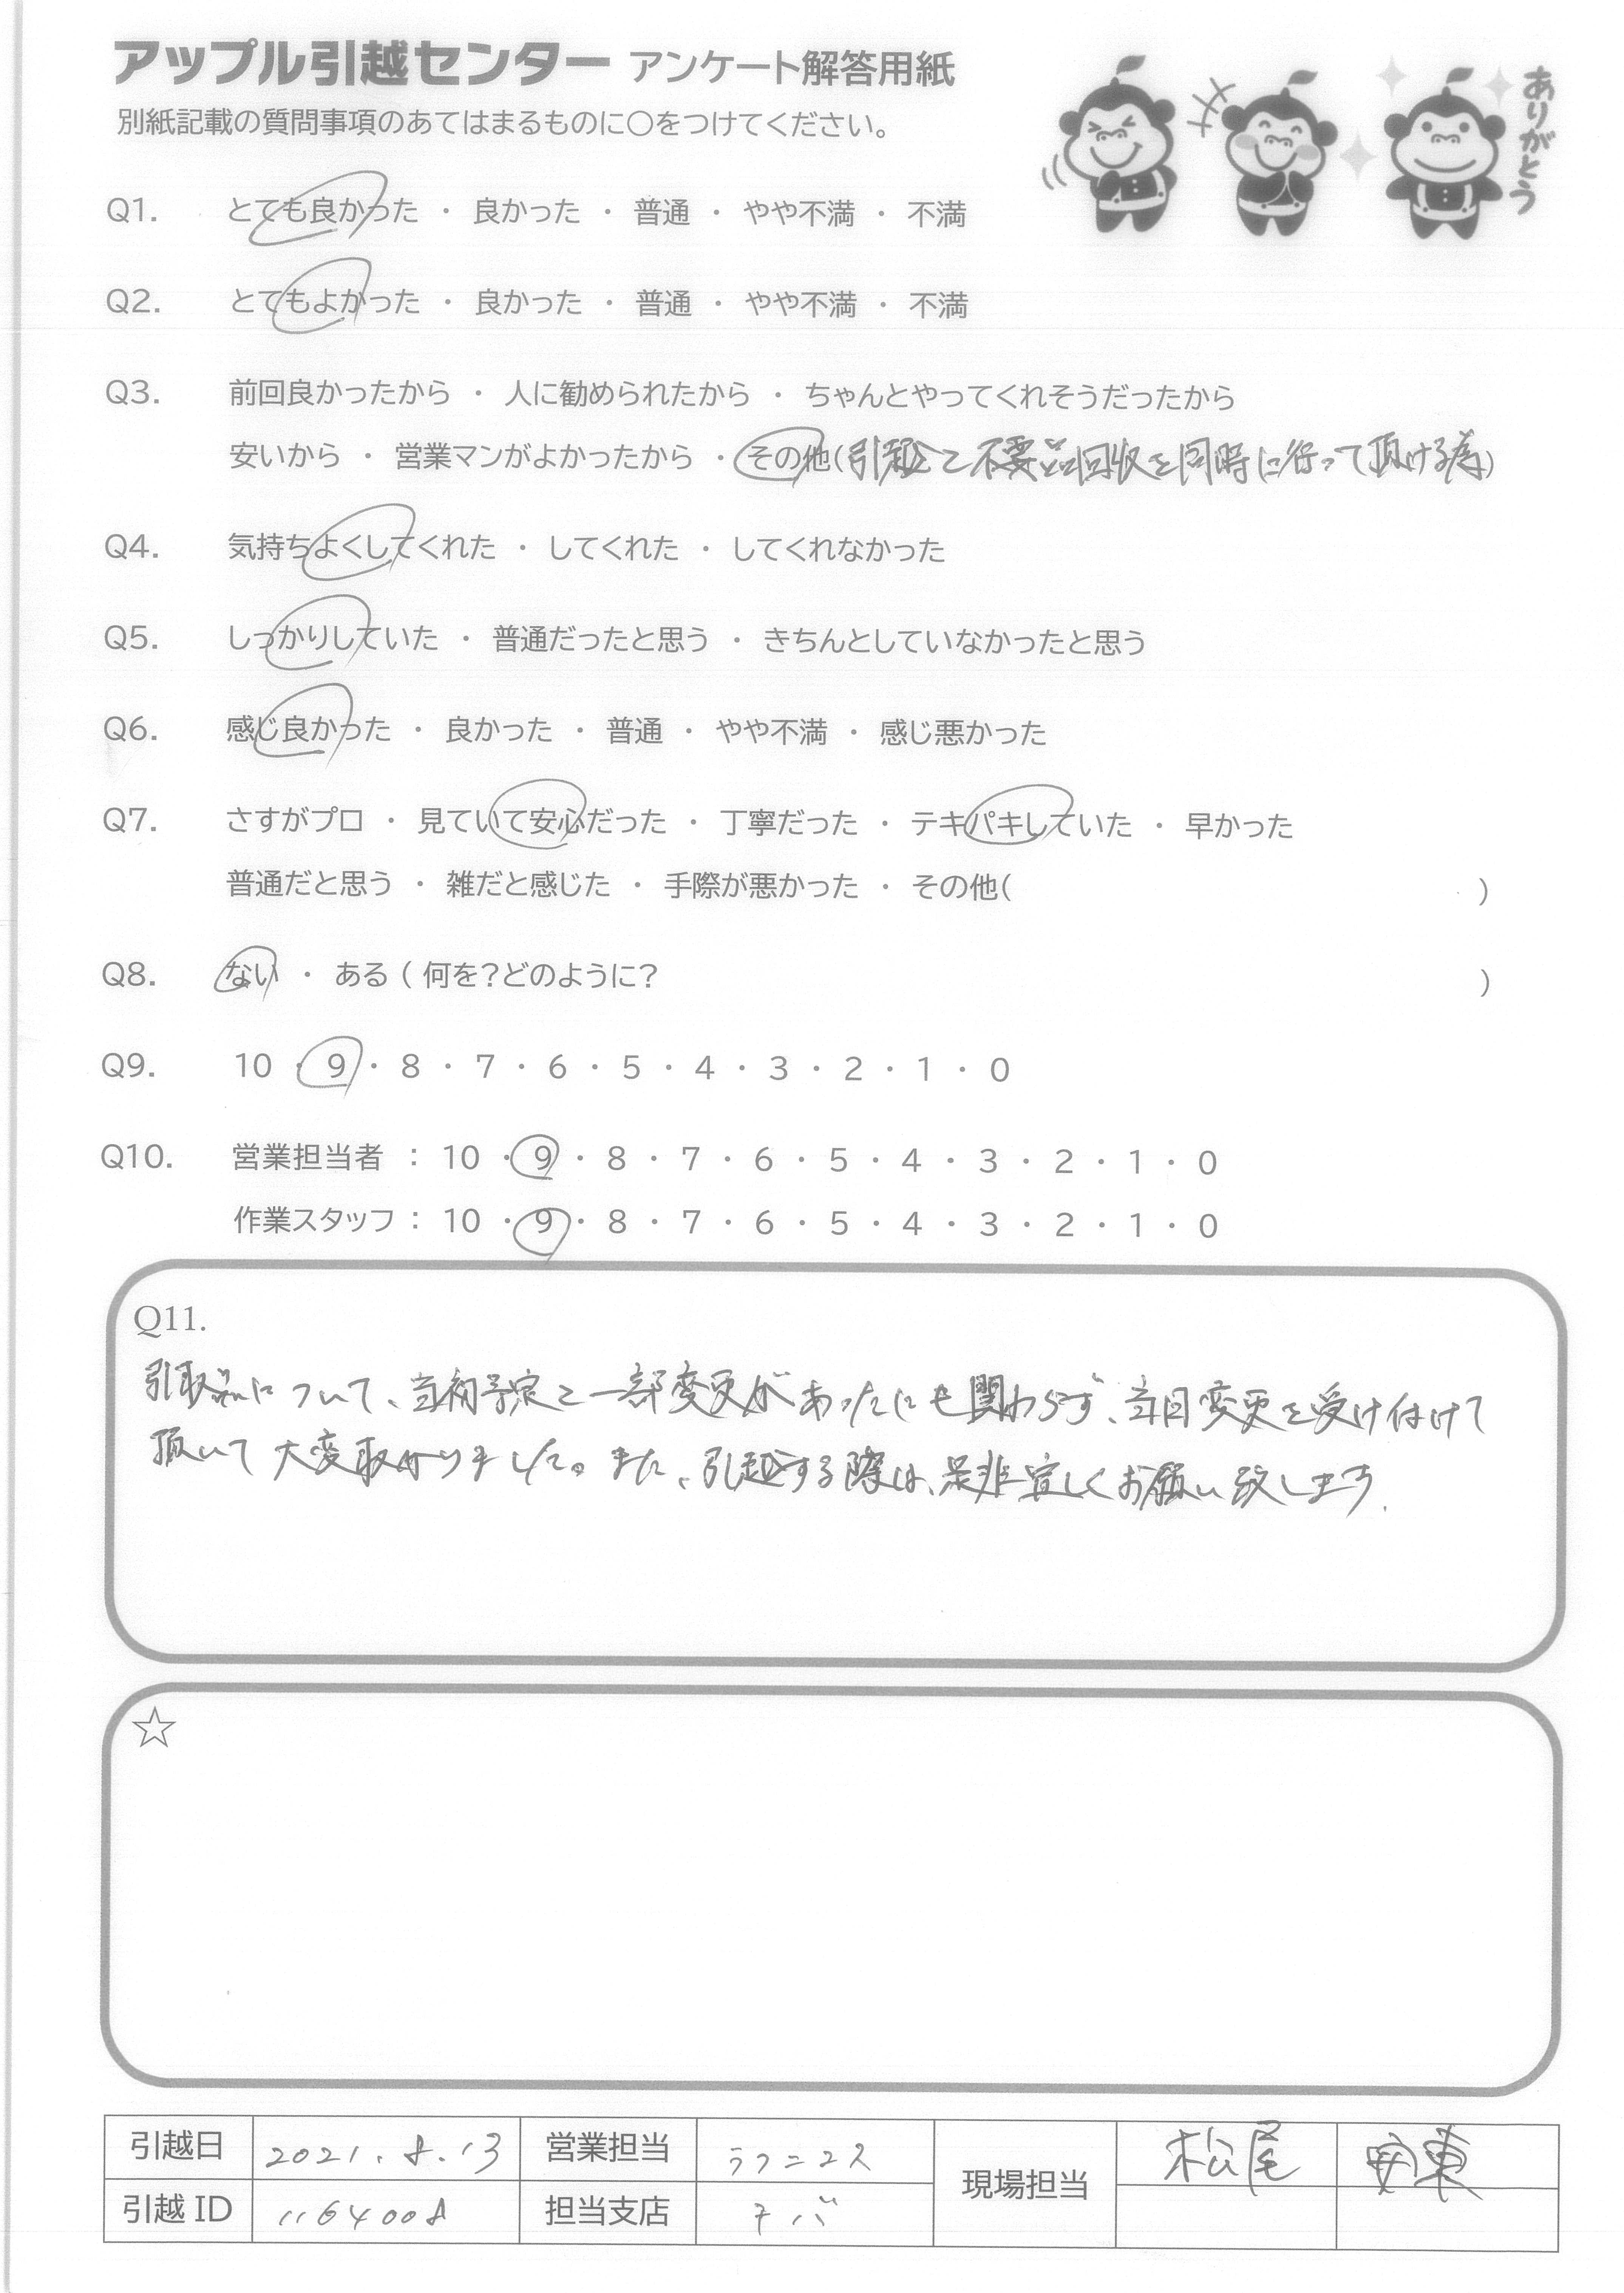 アップル引越センター アンケート解答用紙
別紙記載の質問事項のあてはまるものに○をつけてください。
ありがとう
Q1. とても良かった ・ 良かった ・ 普通 ・ やや不満 ・ 不満
Q2. とてもよかった ・ 良かった ・ 普通 ・ やや不満 ・ 不満
Q3. 前回良かったから ・ 人に勧められたから ・ ちゃんとやってくれそうだったから
安いから ・ 営業マンがよかったから ・ その他(引越と不要品回収を同時に行って頂ける為)
Q4. 気持ちよくしてくれた ・ してくれた ・ してくれなかった
Q5. しっかりしていた ・ 普通だったと思う ・ きちんとしていなかったと思う
Q6. 感じ良かった ・ 良かった ・ 普通 ・ やや不満 ・ 感じ悪かった
Q7. さすがプロ ・ 見ていて安心だった ・ 丁寧だった ・ テキパキしていた ・ 早かった
普通だと思う ・ 雑だと感じた ・ 手際が悪かった ・ その他( )
Q8. ない ・ ある ( 何を?どのように? )
Q9. 10 ・ 9 ・ 8 ・ 7 ・ 6 ・ 5 ・ 4 ・ 3 ・ 2 ・ 1 ・ 0
Q10. 営業担当者 : 10 ・ 9 ・ 8 ・ 7 ・ 6 ・ 5 ・ 4 ・ 3 ・ 2 ・ 1 ・ 0
作業スタッフ : 10 ・ 9 ・ 8 ・ 7 ・ 6 ・ 5 ・ 4 ・ 3 ・ 2 ・ 1 ・ 0
Q11.
引取品について、当初予定と一部変更があったにも関わらず、当日変更を受け付けて
頂いて大変助かりました。また、引越する際は、是非宜しくお願い致します.
☆
引越日 2021.8.13 営業担当 現場担当 松尾 安東
引越ID 1164008 担当支店 チバ